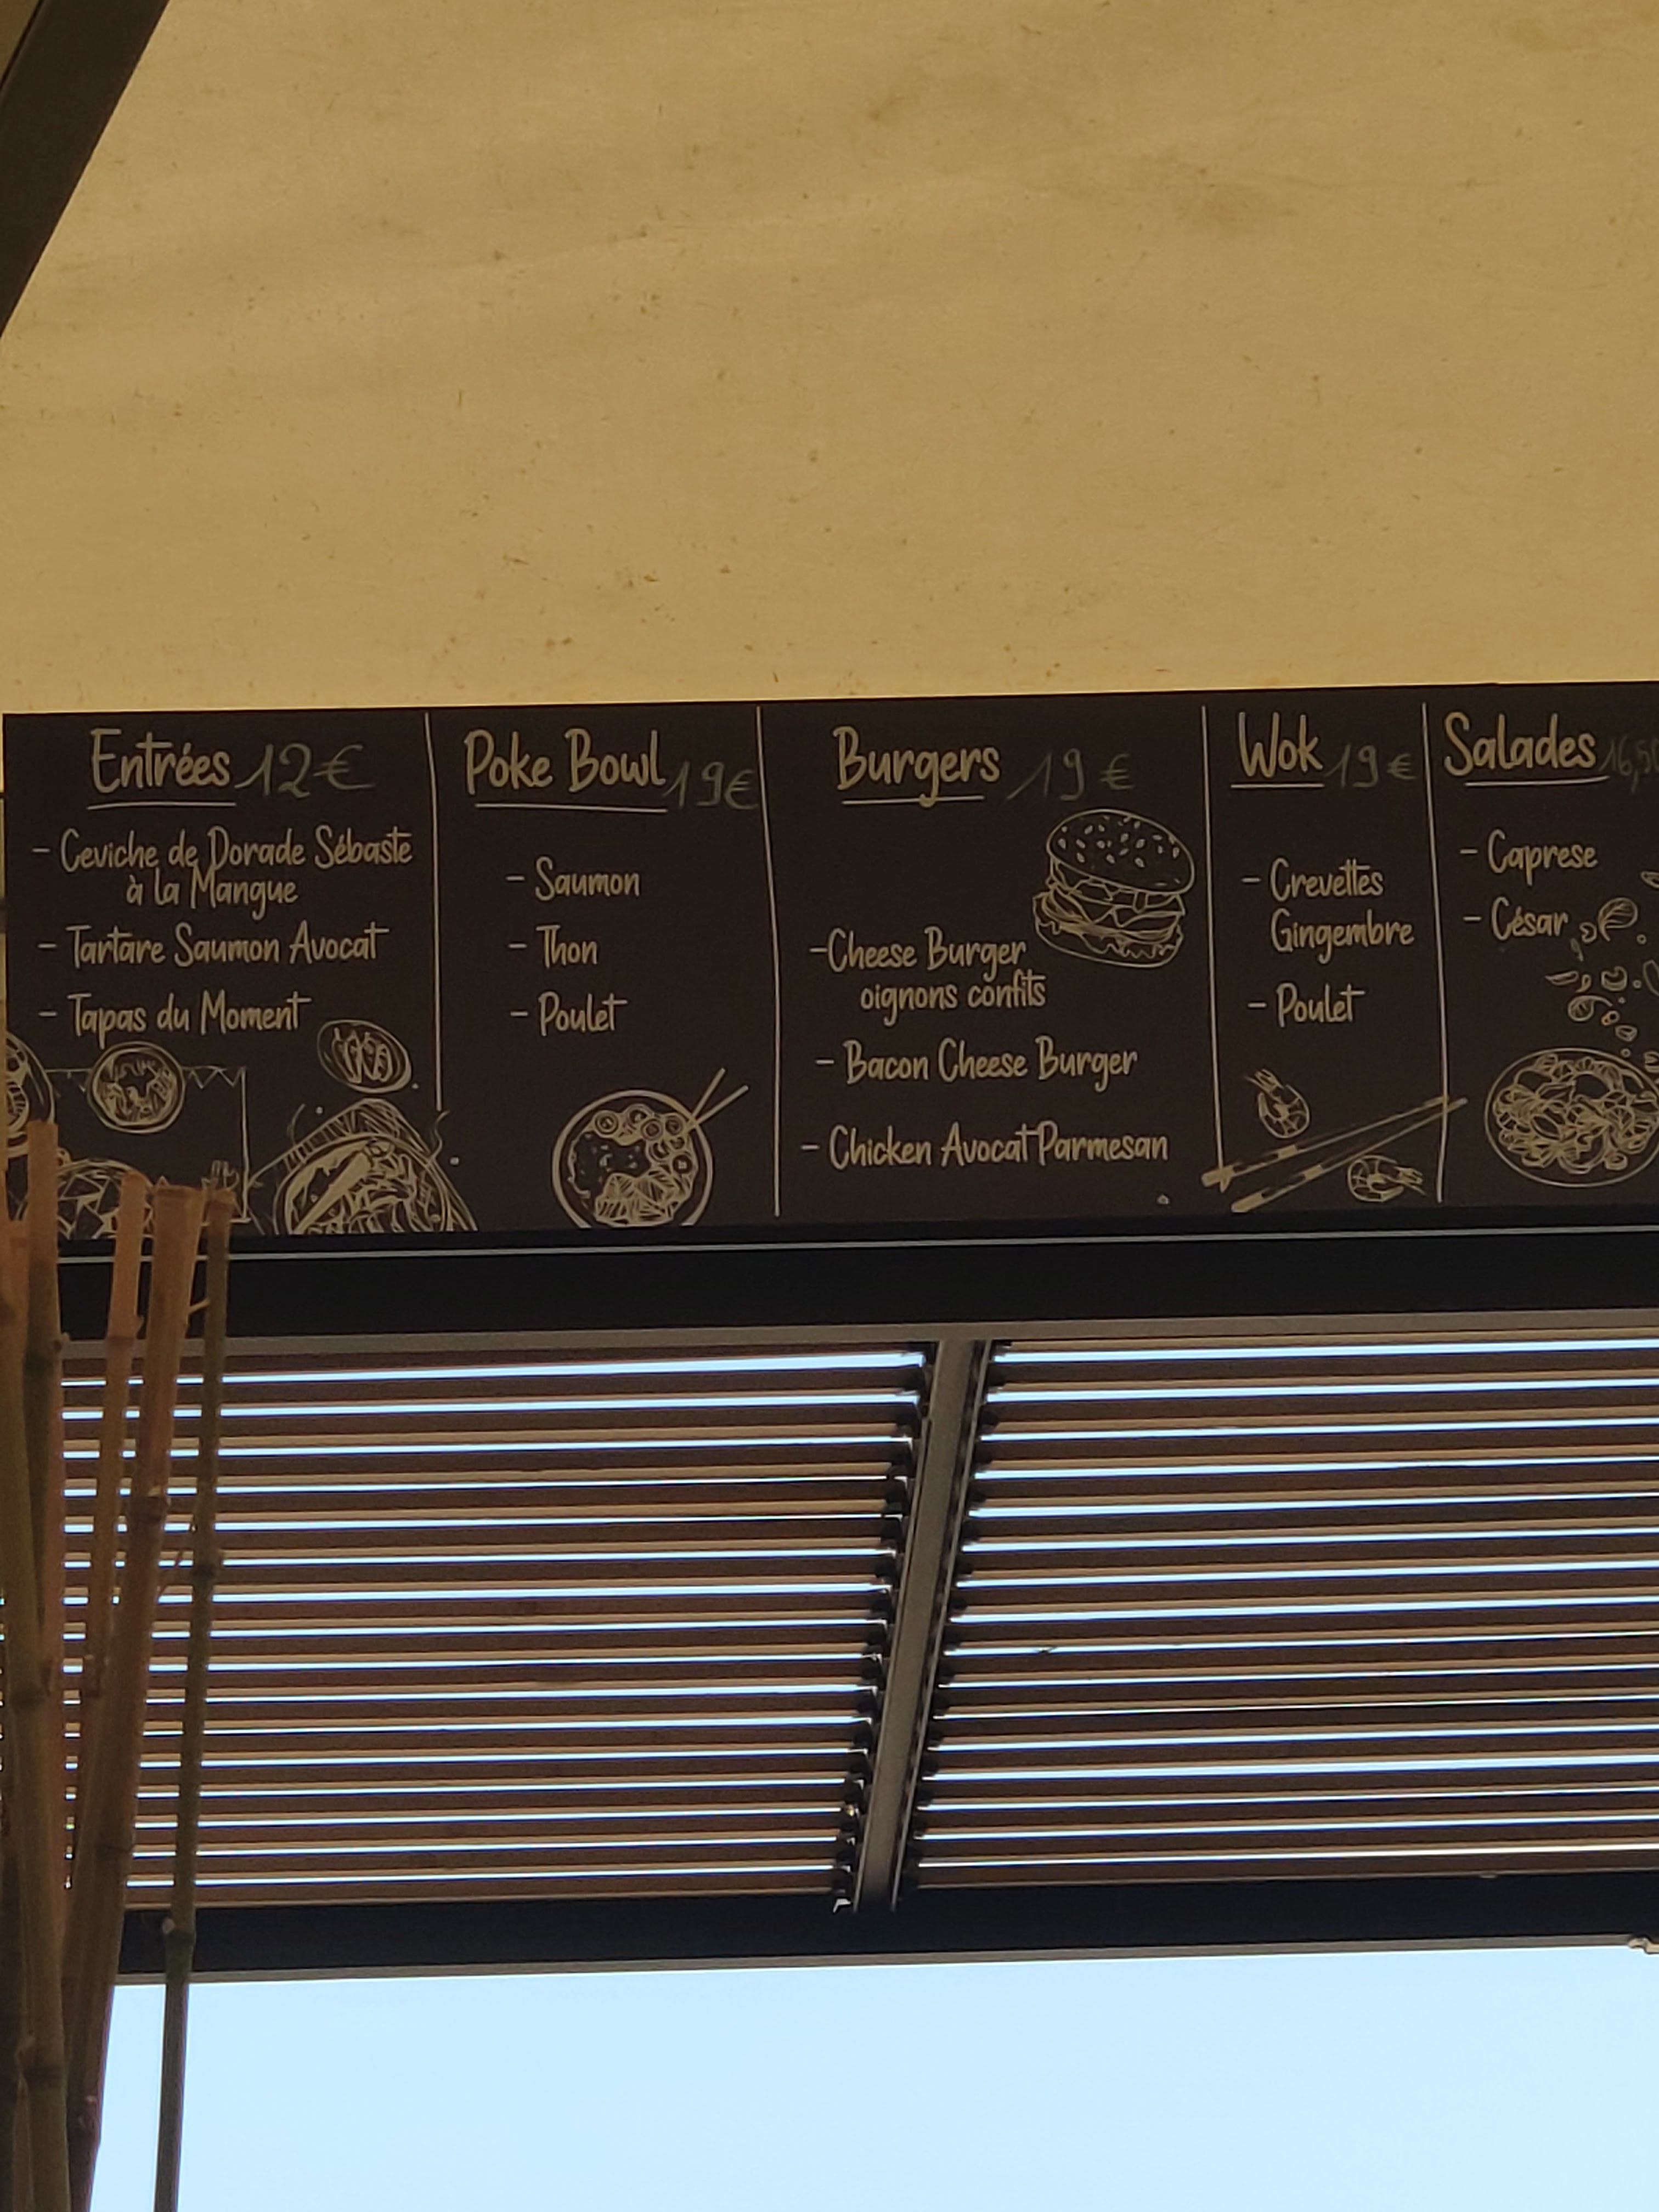 Entrées 12€
- Ceviche de Dorade Sébaste
à la Mangue
- Tartare Saumon Avocat
- Tapas du Moment
Poke Bowl 19€
- Saumon
- Thon
- Poulet
Burgers 19€
- Cheese Burger
oignons confits
- Bacon Cheese Burger
- Chicken Avocat Parmesan
Wok 19€
- Crevettes
Gingembre
- Poulet
Salades
- Caprese
- César